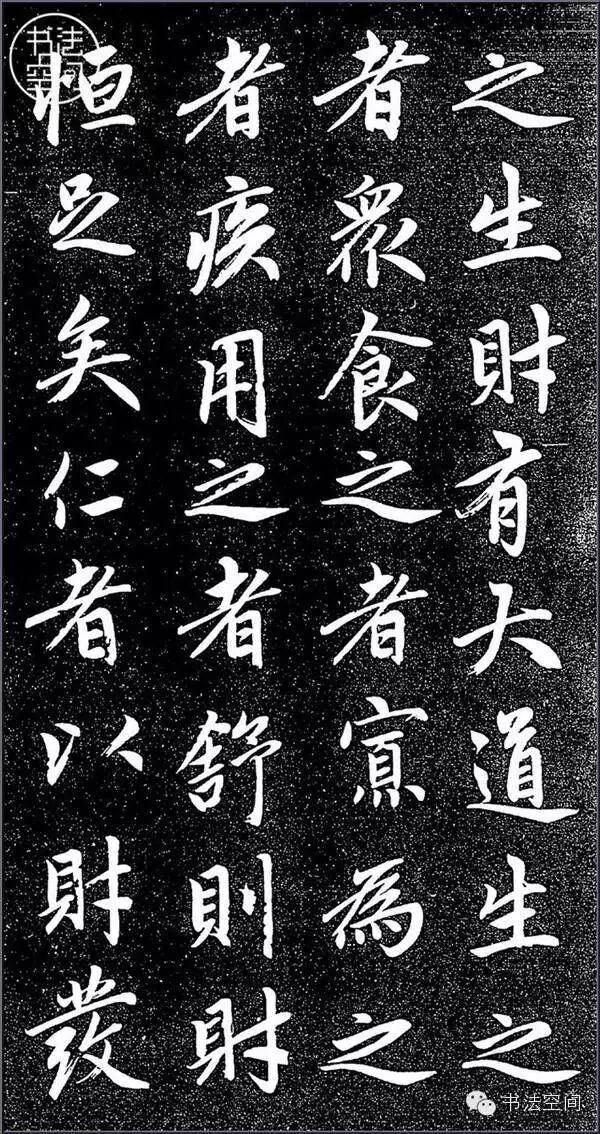 之生財有大道生之
者眾食之者寡為之
者疾用之者舒則財
恒足矣仁者以財發
书法空间
书法空间